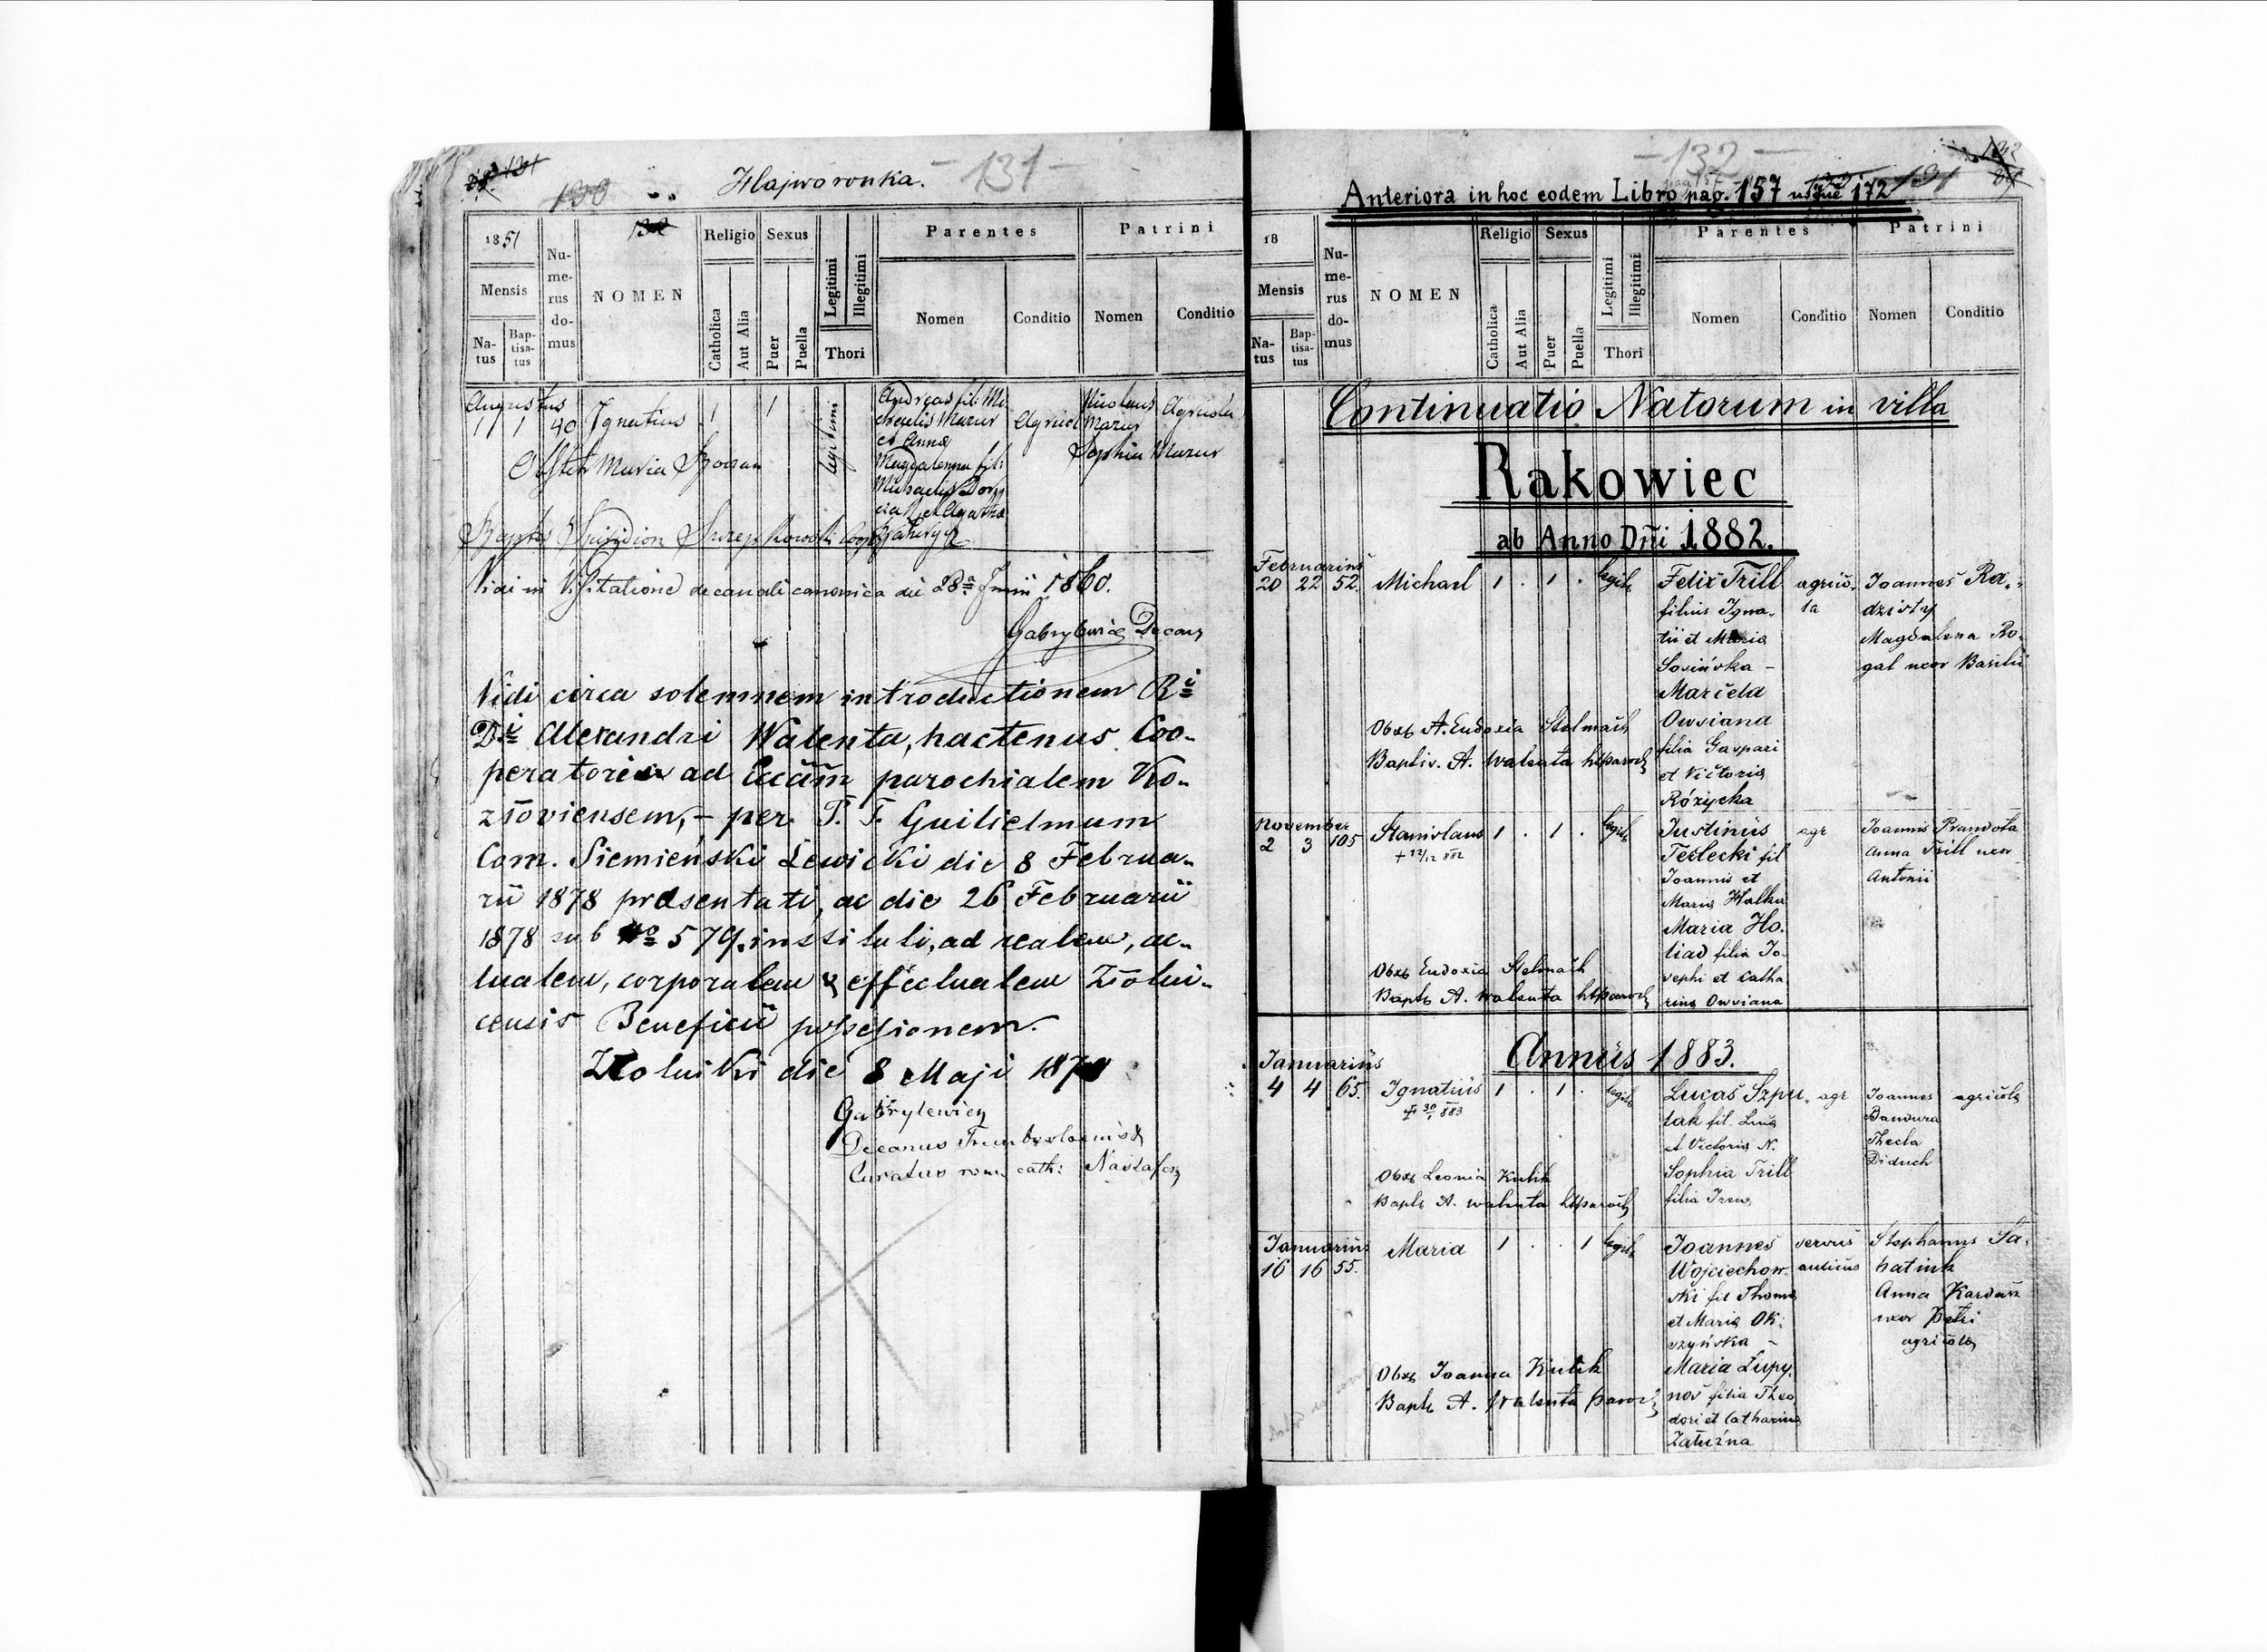 Hajworonka. - 131 -
130
1851
Mensis
Na-
tus
Bap-
tisa-
tus
Nu-
me-
rus
do-
mus
NOMEN
Religio
Catholica
Aut Alia
Sexus
Puer
Puella
Legitimi
Illegitimi
Thori
Parentes
Nomen
Conditio
Patrini
Nomen
Conditio
Augustus
1 1 40 Ignatius 1 1 legitimi
Andreas fil. Mi-
chaelis Mazur
et Anna
Magdalena fil.
Michaelis
et Agatha
Agricol
Nicolaus Agricola
Mazur
Sophia Mazur
Obstet Maria
Bapts Spiridion
Vidi in Visitatione decanali canonica die 28a Junii 1860.
Gabrylewicz Decan
Vidi circa solemnem introductionem Ri
Di Alexandri Walenta, hactenus Coo-
peratoris ad Eccam parochialem Ko-
złoviensem, - per P. T. Guilielmum
Com. Siemieński Lewicki die 8 Februa-
rii 1878 præsentati, ac die 26 Februarii
1878 sub No 579. instituti, ad realem, ac-
tualem, corporalem & effectualem Złotni-
censis Beneficii possessionem.
Złotniki die 8 Maji 187
Gabrylewicz
Decanus
Curatus rom. cath:
- 132 -
Anteriora in hoc eodem Libro pag. 157 usque 172
18
Mensis
Na-
tus
Bap-
tisa-
tus
Nu-
me-
rus
do-
mus
NOMEN
Religio
Catholica
Aut Alia
Sexus
Puer
Puella
Legitimi
Illegitimi
Thori
Parentes
Nomen
Conditio
Patrini
Nomen
Conditio
Continuatio Natorum in villa
Rakowiec
ab Anno Dni 1882.
Februarius
20 22 52. Michael 1 . 1 . legit
Felix Trill
filius Igna-
tii et Maria
Sosińska -
Marcela
Owsiana
filia Gaspari
et Victoria
Różycka
agrico-
la
Joannes Ra-
dzisty
Magdalena Ro-
gal uxor Basilii
Obst A. Eudoxia Stelmach
Baptis. A. Walenta ltparoch
November
2 3 105 Stanislaus 1 . 1 . legit
+ 12/12 882
Justinus
Teslecki fil
Joannis et
Maria Halka
Maria Ho-
liad filia Jo-
sephi et Catha
rina Owsiana
agr
Joannis Prandota
Anna Trill uxor
Antonii
Obst Eudoxia Stelmach
Bapt A. Walenta ltparoch
Annus 1883.
Januarius
4 4 65. Ignatius 1 . 1 . legit
Lucas Szpu-
lak fil. Luca
et Victoria N.
Sophia Trill
filia
agr
Joannes
Bandura
Thecla
Diduch
agricola
Obst Leonia Kulik
Bapt A. Walenta ltparoch
Januarius
16 16 55. Maria 1 . . 1 legit
Joannes
Wojciechow-
ski fil Thoma
et Maria Ok-
szyńska -
Maria Łupy-
nos filia Theo
dori et Catharina
Załuzna
servus
aulicus
Stephanus Sa-
hatiuk
Anna Kardasz
uxor Petri
agricola
Obst Joanna Kulik
Bapt A. Walenta paroch